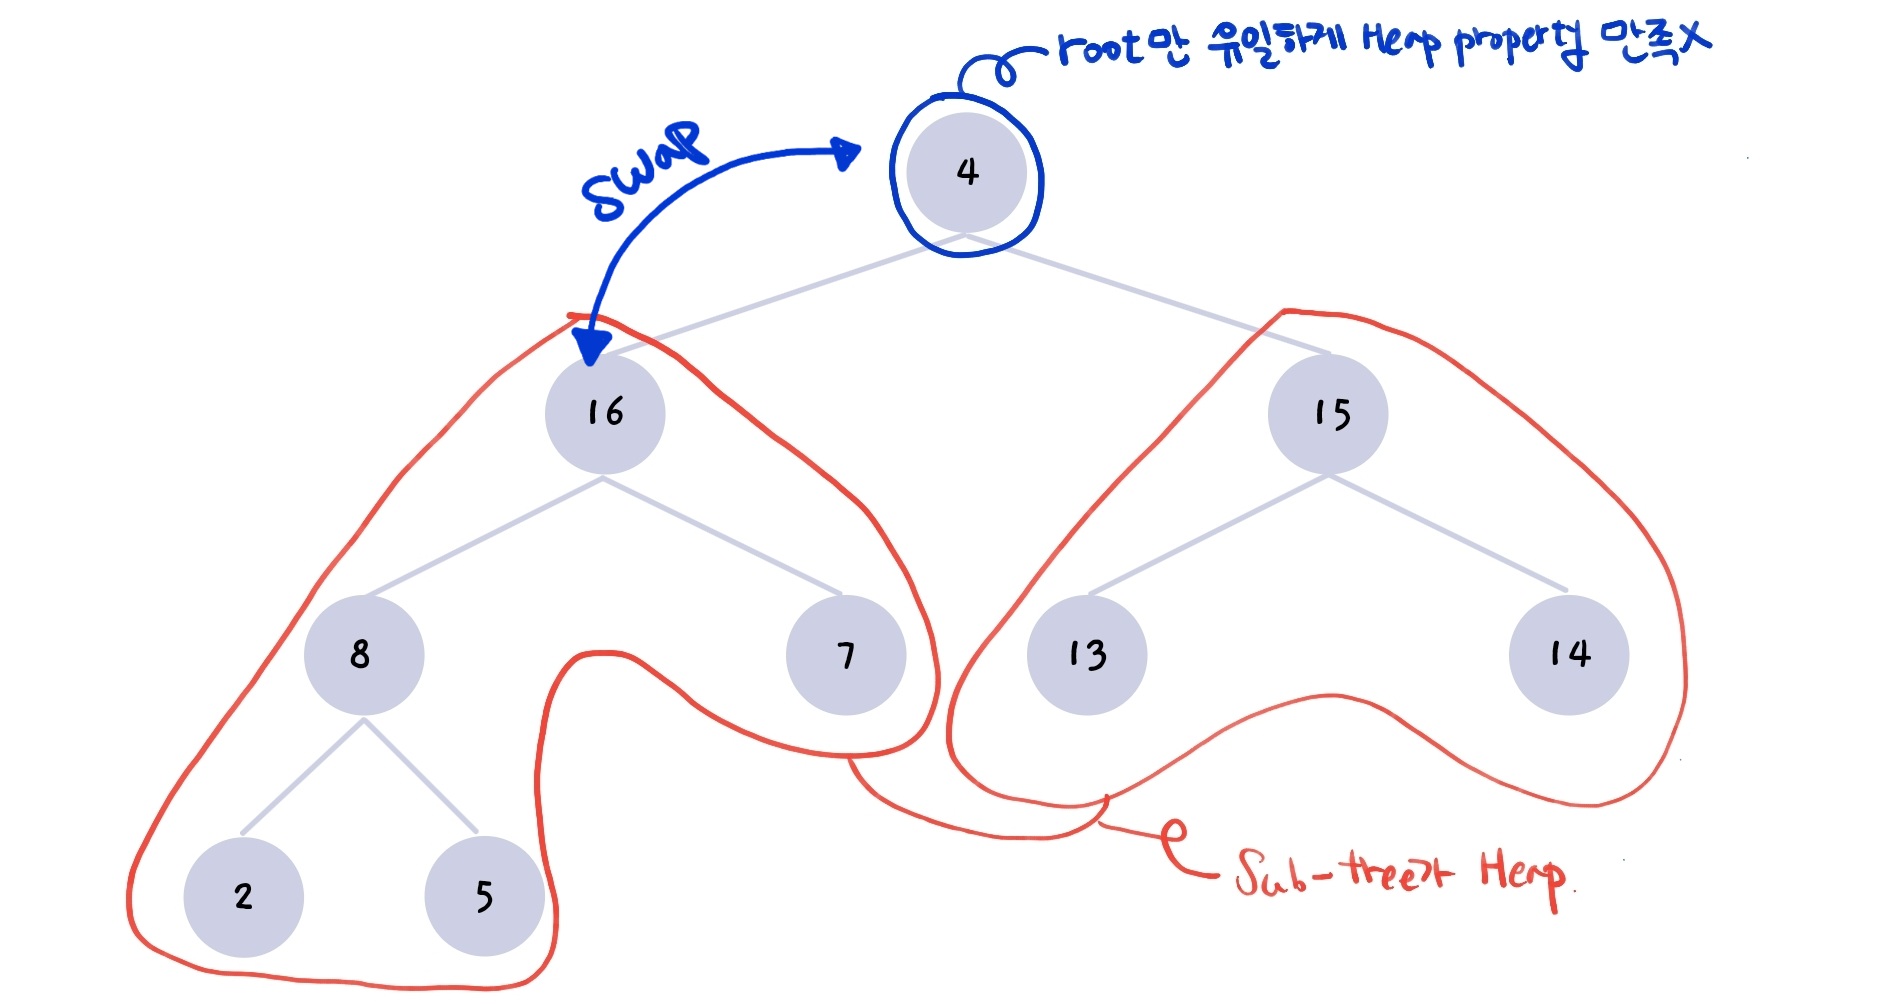 root만 유일하게 Heap property 만족X
swap
4
16
15
8
7
13
14
2
5
Sub-tree가 Heap.